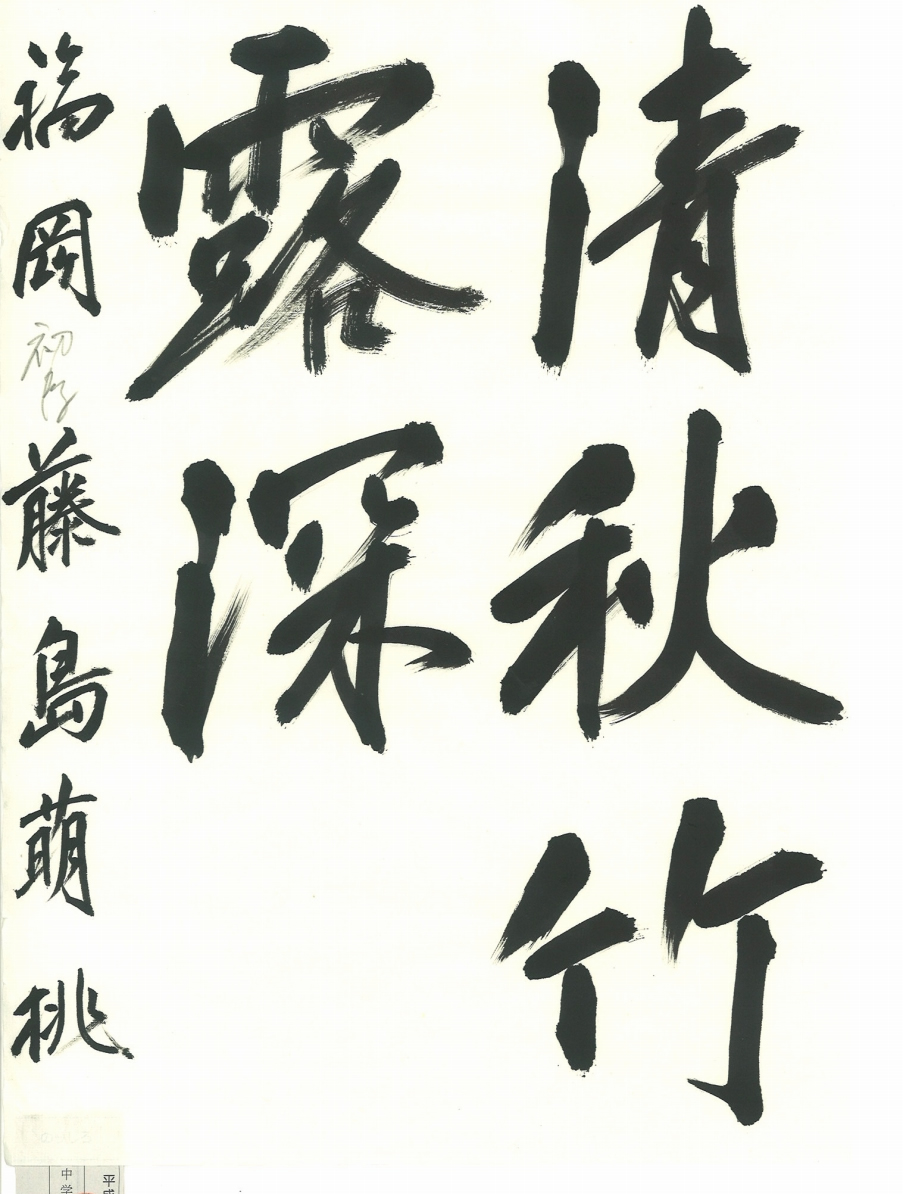 清秋竹
露深
福岡 初段 藤島萌桃
平成
中学